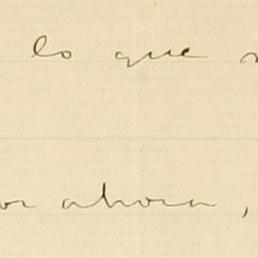 lo que
or ahora,